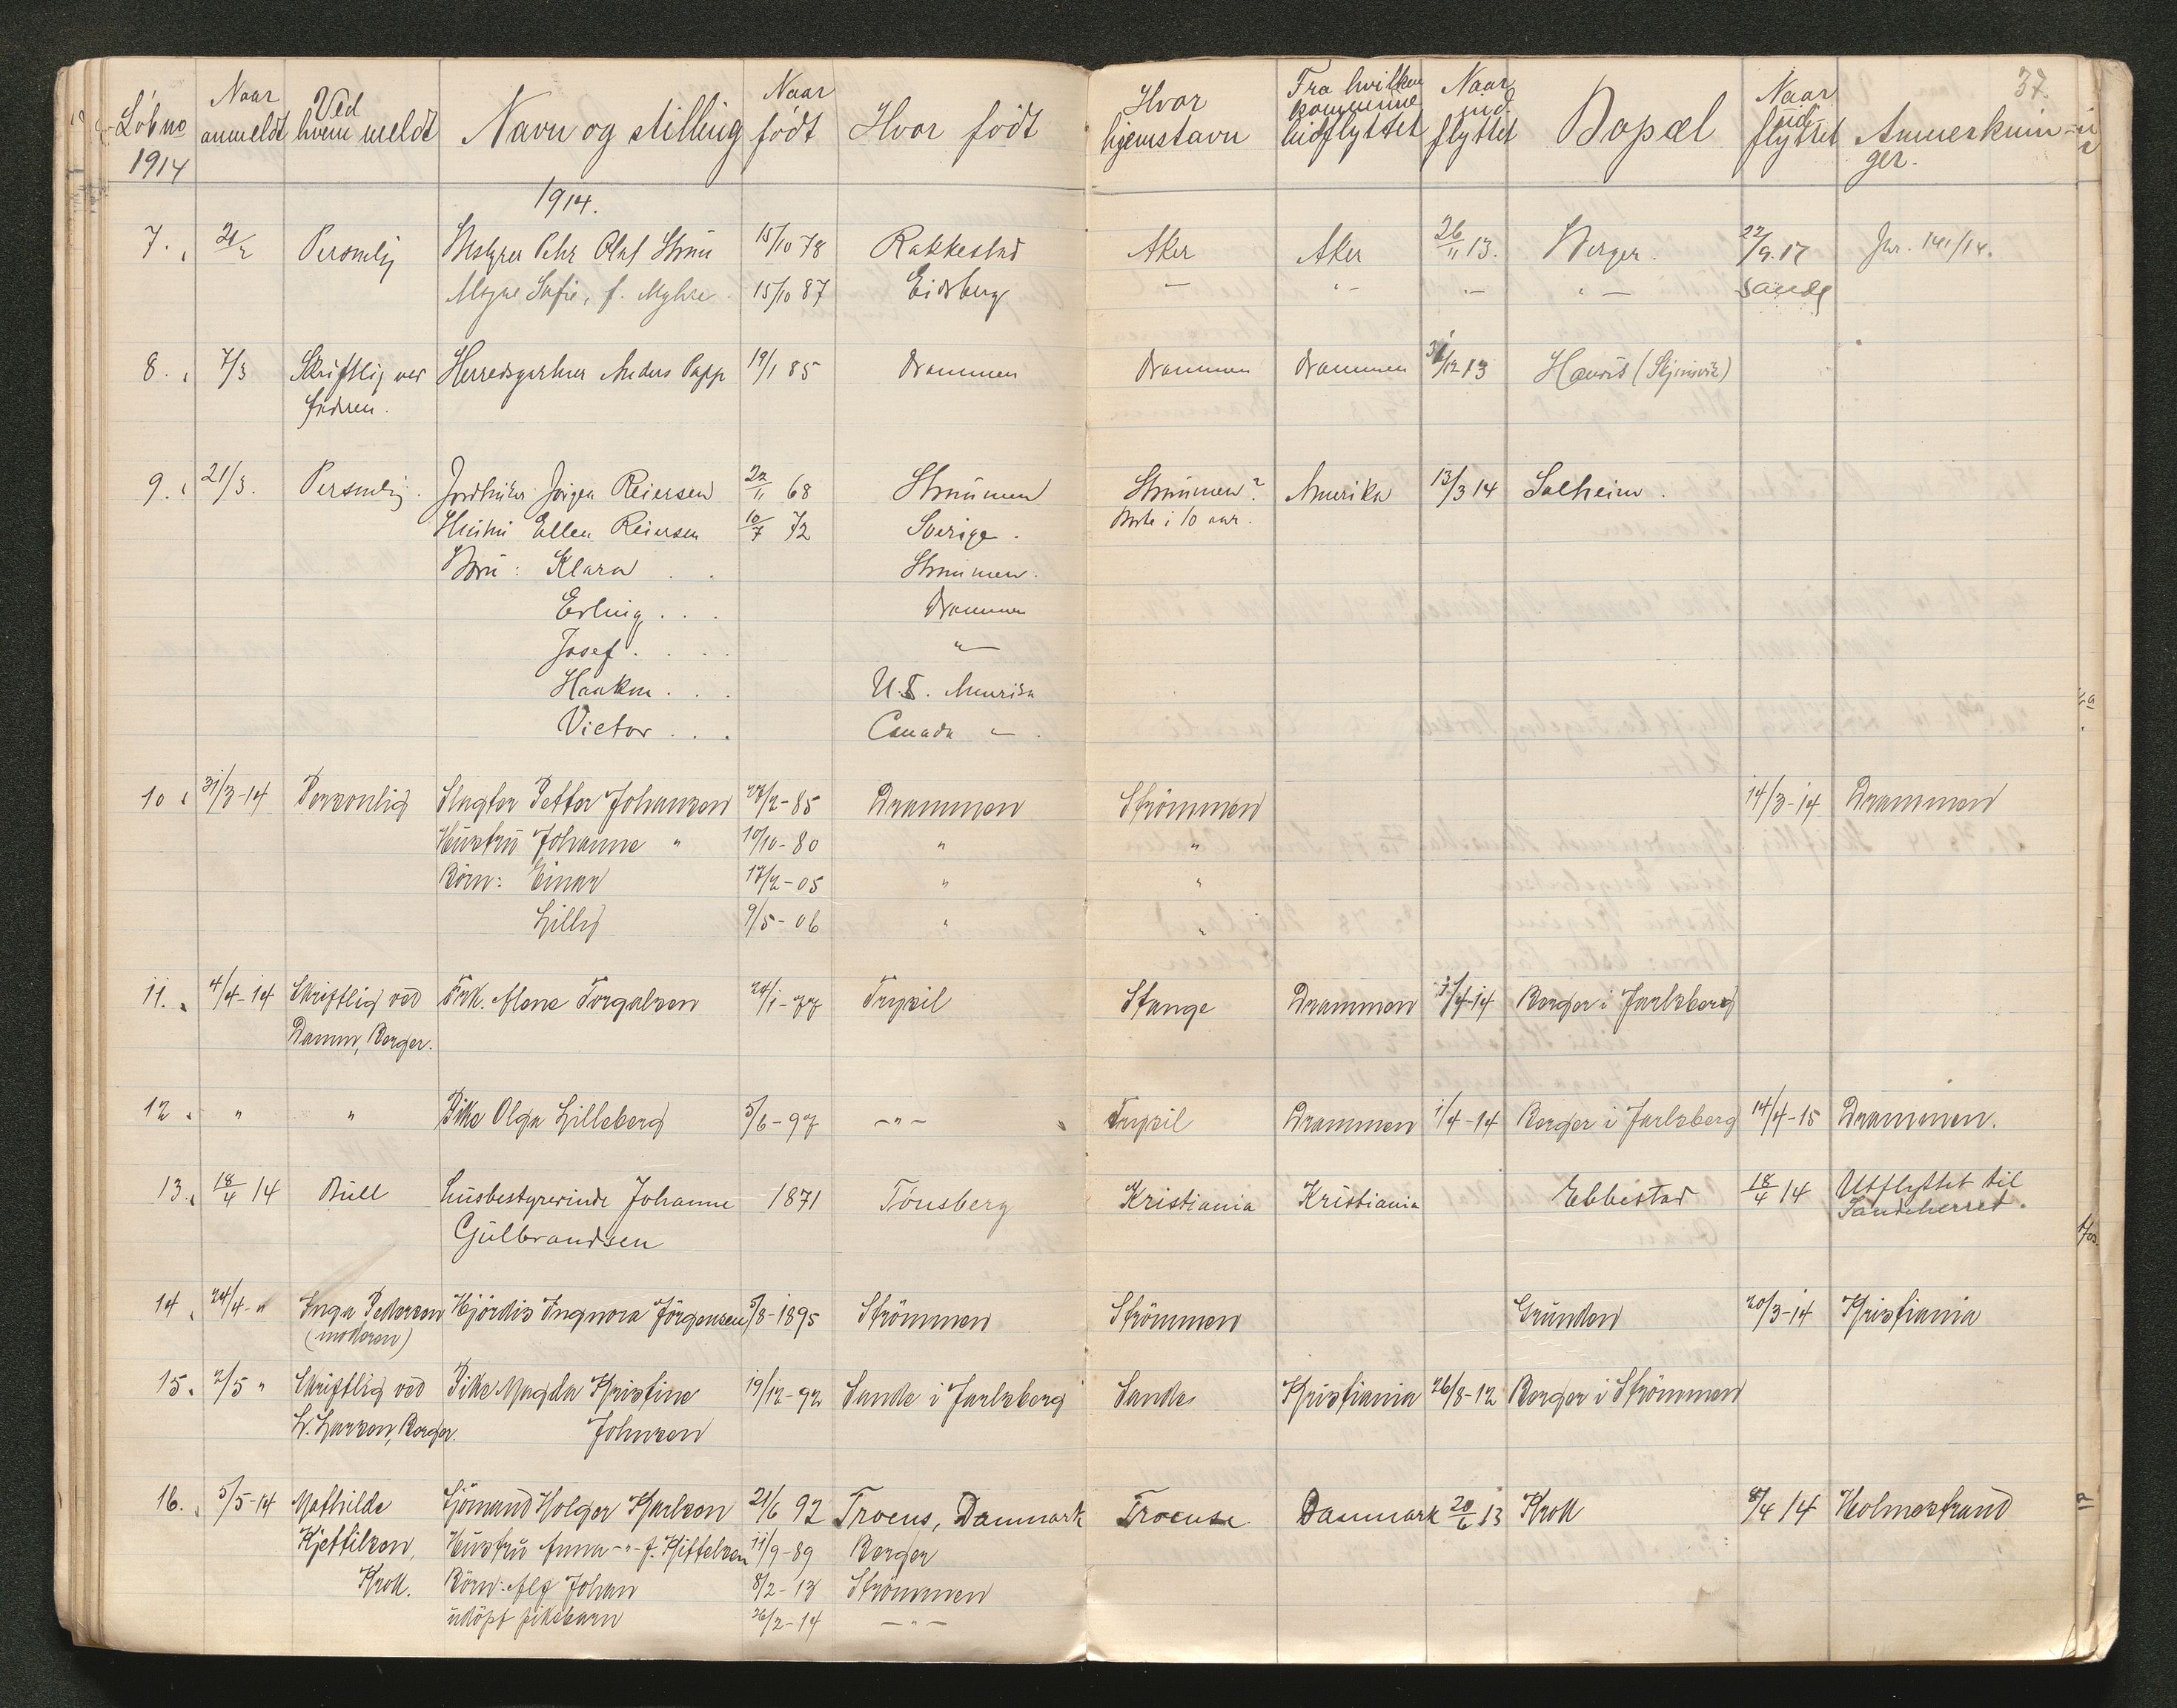 37.
Löbno 1914 | Naar anmeldt | Ved hvem meldt | Navn og stilling | Naar födt | Hvor födt | Hvor hjemstavn | Fra hvilken kommune indflyttet | Naar ind flyttet | Bopæl | Naar ud flyttet | Anmerkninger.
1914.
7. | Personlig | Olaf | 15/10 78 | Rakkestad | Aker | Aker | 26/11 13. | Berger. | 22/9. 17 | Jnr. 141/14.
Sofie, f. Myhre | 15/10 87 | Eidsberg | — | " — | " — | " — | Sande
8. | 7/3 | Skriftlig ved | Herredsgartner Anders Papp | 19/1 85 | Drammen | Drammen | Drammen | 31/12 13
fadren.
9. | 21/3. | Personlig. | Reiersen | 22/11 68 | Strömmen | Strömmen? | Amerika | 13/3 14 | Solheim.
Hustru Ellen Reiersen | 10/7 72 | Sverige. | Borte i 10 aar.
Börn: Klara . . | Strömmen.
Erling . . . | Drammen
Josef . . . . | " —
Haakon . . . | U.S. Amerika
Victor . . . | Canada " —
10 | 31/3-14 | Personlig | Slagter Petter Johansen | 27/2-85 | Drammen | Strömmen | 14/3-14 | Drammen
Hustru Johanne " | 10/10-80 | " | "
Börn: Einar | 17/2-05 | " | "
Lilly | 9/5-06 | " | "
11. | 4/4-14 | Skriftlig ved | Frk. Alene Torgalsen | 24/1-77 | Trysil | Stange | Drammen | 1/4-14 | Berger i Jarlsberg
Damm, Berger.
12. | " | " | Pike Olga Lilleberg | 5/6-97 | — " — | Trysil | Drammen | 1/4-14 | Berger i Jarlsberg | 14/4-15 | Drammen.
13. | 18/4 14 | Bull | Husbestyrerinde Johanne | 1871 | Tönsberg | Kristiania | Kristiania | Ebbestad | 18/4 14 | Utflyttet til
Gulbrandsen | Sandeherred.
14. | 24/4-" | Inga Pedersen | Hjördis Ingnora Jörgensen | 5/8-1895 | Strömmen | Strömmen | Grunden | 20/3-14 | Kristiania
(moderen)
15. | 2/5 " | Skriftlig ved | Pike Magda Kristine | 19/12-92 | Sande i Jarlsberg | Sande | Kristiania | 26/8-12 | Berger i Strömmen
L. Larsen, Berger. | Johnsen
16. | 5/5-14 | Mathilde | Sjömand Holger Karlsen | 21/6 92 | Troens, Danmark | Troense | Danmark | 20/6 13 | Krok | 8/4 14 | Holmestrand
Kjettilsen, | Hustru Anna — " — f. Kittelsen | 11/9-89 | Berger
Krok. | Börn: Alf Johan | 8/2-13 | Strömmen
udöpt pikebarn | 26/2-14 | — " —